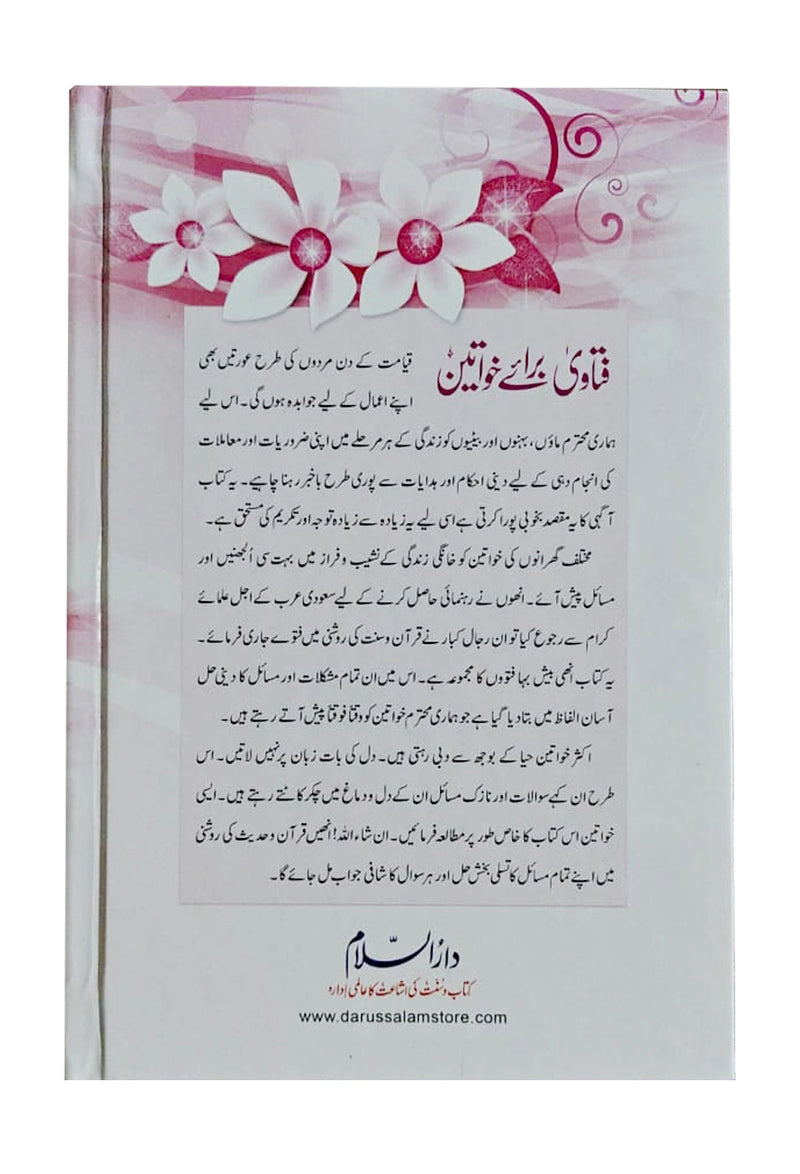 فتاویٰ برائے خواتین
قیامت کے دن مردوں کی طرح عورتیں بھی
اپنے اعمال کے لیے جوابدہ ہوں گی۔ اس لیے
ہماری محترم ماؤں، بہنوں اور بیٹیوں کو زندگی کے ہر مرحلے میں اپنی ضروریات اور معاملات
کی انجام دہی کے لیے دینی احکام اور ہدایات سے پوری طرح باخبر رہنا چاہیے۔ یہ کتاب
آگہی کا یہ مقصد بخوبی پورا کرتی ہے اسی لیے یہ زیادہ سے زیادہ توجہ اور تکریم کی مستحق ہے۔
مختلف گھرانوں کی خواتین کو خانگی زندگی کے نشیب و فراز میں بہت سی اُلجھنیں اور
مسائل پیش آئے۔ انھوں نے رہنمائی حاصل کرنے کے لیے سعودی عرب کے اجل علمائے
کرام سے رجوع کیا تو ان رجال کبار نے قرآن و سنت کی روشنی میں فتوے جاری فرمائے۔
یہ کتاب انھی بیش بہا فتووں کا مجموعہ ہے۔ اس میں ان تمام مشکلات اور مسائل کا دینی حل
آسان الفاظ میں بتا دیا گیا ہے جو ہماری محترم خواتین کو وقتاً فوقتاً پیش آتے رہتے ہیں۔
اکثر خواتین حیا کے بوجھ سے دبی رہتی ہیں۔ دل کی بات زبان پر نہیں لاتیں۔ اس
طرح ان کہے سوالات اور نازک مسائل ان کے دل و دماغ میں چکر کاٹتے رہتے ہیں۔ ایسی
خواتین اس کتاب کا خاص طور پر مطالعہ فرمائیں۔ ان شاء اللہ! انھیں قرآن و حدیث کی روشنی
میں اپنے تمام مسائل کا تسلی بخش حل اور ہر سوال کا شافی جواب مل جائے گا۔
دارُالسّلام
کتاب و سُنّت کی اشاعت کا عالمی ادارہ
www.darussalamstore.com